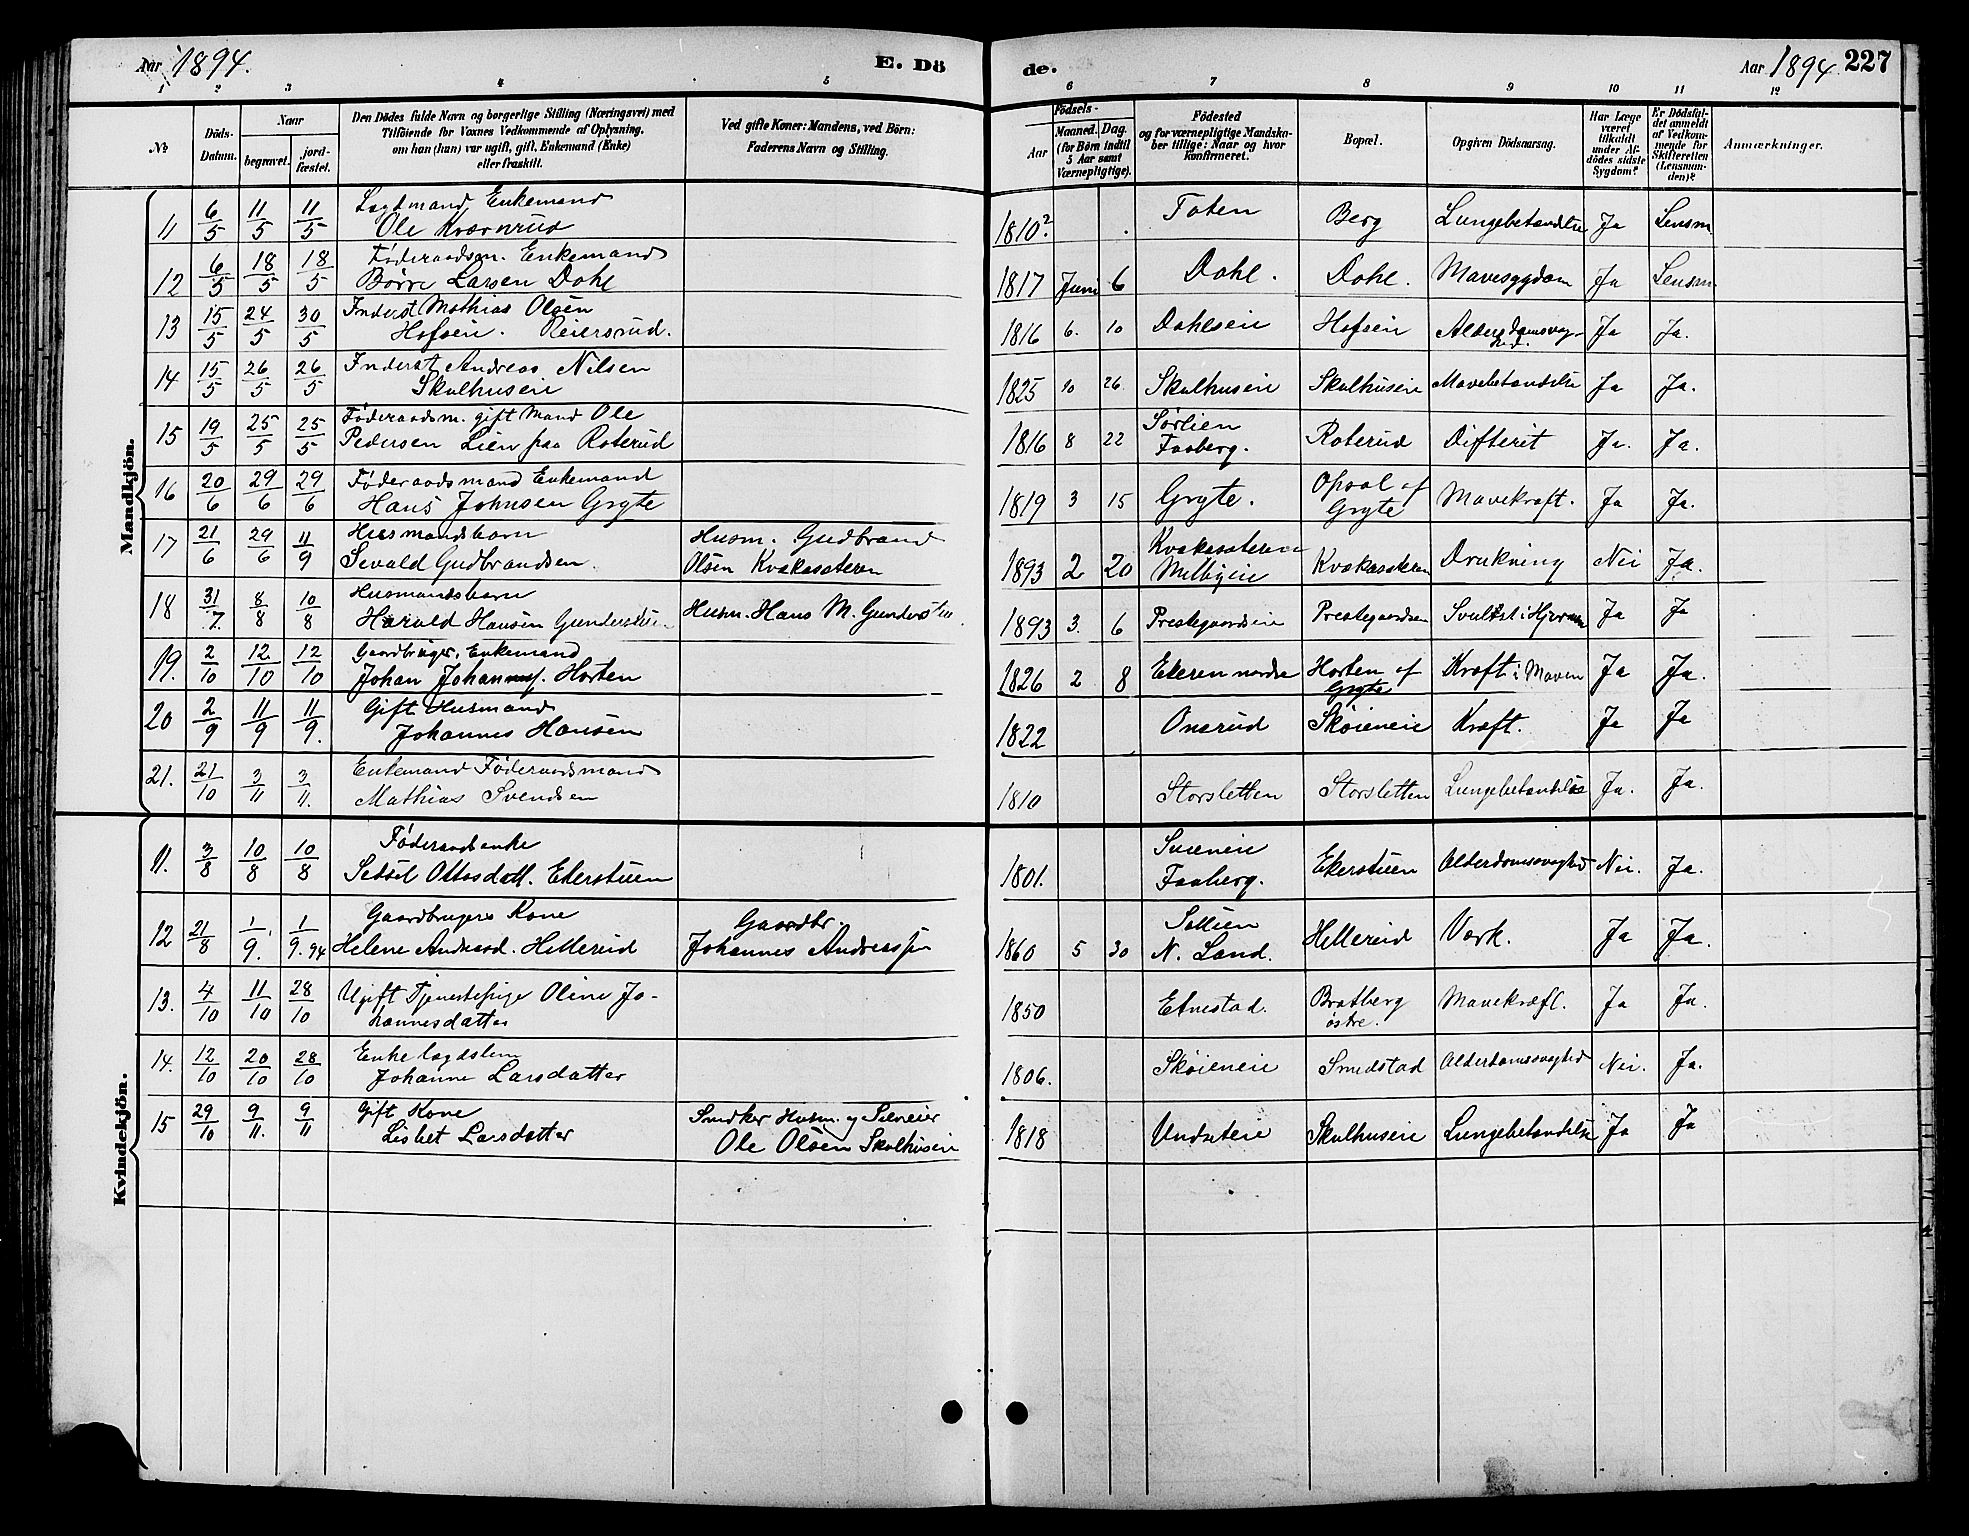 Aar 1894. E. Dö de. Aar 1894. 227
1 2 3 4 5 6 7 8 9 10 11 12
No
Döds-
Datum.
Naar
begravet.
jord-
fæstet.
Den Dödes fulde Navn og borgerlige Stilling (Næringsvei) med
Tilföiende for Voxnes Vedkommende af Oplysning,
om han (hun) var ugift, gift, Enkemand (Enke)
eller fraskilt.
Ved gifte Koner: Mandens, ved Börn:
Faderens Navn og Stilling.
Födsels-
Aar
Maaned. Dag.
(for Börn indtil
5 Aar samt
Værnepligtige).
Födested
og for værnepligtige Mandska-
ber tillige: Naar og hvor
konfirmeret.
Bopæl.
Opgiven Dödsaarsag.
Har Læge
været
tilkaldt
under Af-
dödes sidste
Sygdom?
Er Dödsfal-
det anmeldt
af Vedkom-
mende for
Skifteretten
(Lensman-
den)?
Anmærkninger.
Mandkjön.
11 6/5 11/5 11/5 Lægdmand, Enkemand
Ole Kværnrud 1810? Toten Berg Lungebetændelse Ja Lensm
12 6/5 18/5 18/5 Føderaadsm. Enkemand
Børre Larsen Dahl 1817 Juni 6 Dahl. Dahl. Mavesygdom Ja Lensm
13 15/5 24/5 30/5 Inderst Mathias Olsen
Hofseie. Reiersrud. 1816 6. 10 Dahlseie Hofseie Alderdomssvag-
hed. Ja Ja.
14 15/5 26/5 26/5 Inderst Andreas Nilsen
Skulhuseie 1825 10 26. Skulhuseie Skulhuseie Mavebetændelse Ja Ja.
15 19/5 25/5 25/5 Føderaadsm. gift Mand Ole
Pedersen Lien paa Roterud 1816 8 22 Sørlien
Faaberg. Roterud Difterit Ja. Ja.
16 20/6 29/6 29/6 Føderaadsmand Enkemand
Hans Johnsen Gryte 1819 3 15 Gryte. Opsal af
Gryte Mavekræft. Ja Ja.
17 21/6 29/6 11/9 Husmandsbarn
Sevald Gudbrandsen. Husm. Gudbrand
Olsen Kvækasæteren 1893 2 20 Kvækasæteren
Melbyeie Kvækasæteren Drukning Nei Ja.
18 31/7. 8/8 10/8 Husmandsbarn
Harald Hansen Gunderstuen Husm. Hans M. Gunderstuen. 1893 3. 6 Prestegaardseie Prestegaardseie Svulst i Hjernen Ja Ja
19. 2/10 12/10 12/10 Gaardbruger, Enkemand
Johan Johannesf. Horten 1826 2 8 Ekeren nordre Horten af
Gryte Kræft i Maven Ja Ja.
20 2/9 11/9 11/9. Gift Husmand
Johannes Hansen 1822 Onsrud Skøieneie Kræft. Ja Ja
21. 21/10 3/11 3/11. Enkemand Føderaadsmand
Mathias Svendsen 1810 Storsletten Storsletten Lungebetændelse Ja. Ja.
Kvindekjön.
11. 3/8 10/8 10/8 Føderaadsenke
Sidsel Ottosdatt. Ekerstuen 1801. Sveneie
Faaberg. Ekerstuen Alderdomssvaghed Nei. Ja.
12 21/8 1/9. 1/9. 94 Gaardbrugers Kone
Helene Andreasd. Hillerud Gaardbr.
Johannes Andreassen 1860 5 30 Sollien
N. Land. Hillerud Værk. Ja Ja.
13. 4/10 11/10 28/10 Ugift Tjenestepige Oline Jo-
hannesdatter 1850 Etnestad. Bratberg
østre. Mavekræft. Ja Ja.
14. 12/10 20/10 28/10 Enke lægdslem
Johanne Larsdatter 1806. Skøieneie Smedstad Alderdomssvaghed Nei. Ja.
15 29/10 9/11. 9/11 Gift Kone
Lisbet Larsdatter Snedker Husm. og Selveier
Ole Olsen Skulhuseie 1818 Undseteie Skulhuseie Lungebetændelse Ja Ja